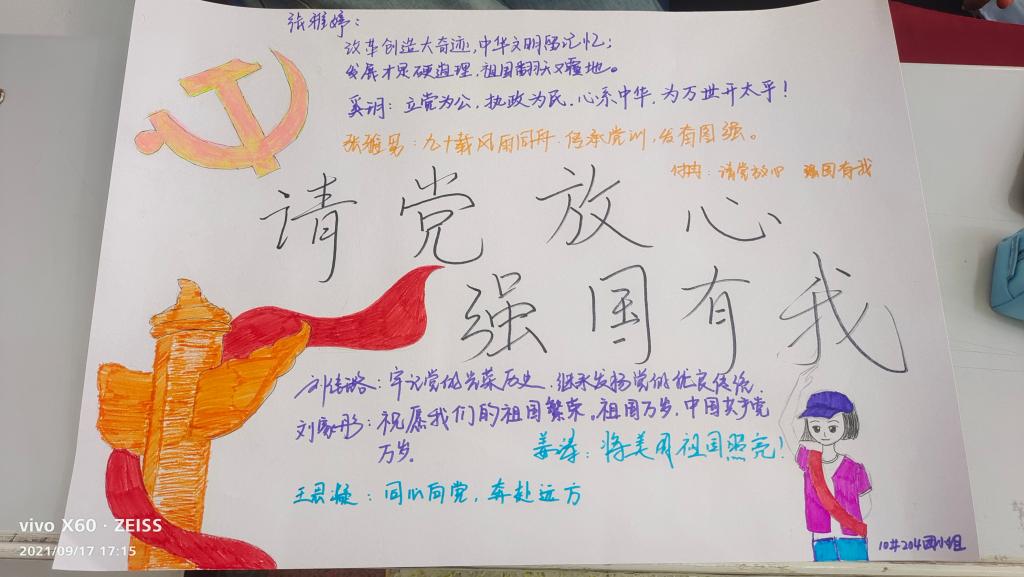 张雅婷：
改革创造大奇迹，中华文明留记忆；
发展才是硬道理，祖国翻天又覆地。
奚玥：立党为公，执政为民，心系中华，为万世开太平！
张雅男：九十载风雨同舟，传承党训，发奋图强。
付冉：请党放心 强国有我
请党放心
强国有我
刘倩璐：牢记党的光荣历史，继承发扬党的优良传统.
刘家彤：祝愿我们的祖国繁荣。祖国万岁，中国共产党
万岁。
姜涛：将美用祖国照亮！
王思凝：同心向党，奔赴远方
10井204团小组
vivo X60 · ZEISS
2021/09/17 17:15